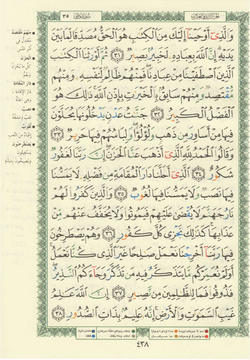 وَالَّذِي أَوْحَيْنَا إِلَيْكَ مِنَ الْكِتَابِ هُوَ الْحَقُّ مُصَدِّقًا لِّمَا بَيْنَ
يَدَيْهِ إِنَّ اللَّهَ بِعِبَادِهِ لَخَبِيرٌ بَصِيرٌ ٣١ ثُمَّ أَوْرَثْنَا الْكِتَابَ
الَّذِينَ اصْطَفَيْنَا مِنْ عِبَادِنَا فَمِنْهُمْ ظَالِمٌ لِّنَفْسِهِ وَمِنْهُم
مُّقْتَصِدٌ وَمِنْهُمْ سَابِقٌ بِالْخَيْرَاتِ بِإِذْنِ اللَّهِ ذَٰلِكَ هُوَ
الْفَضْلُ الْكَبِيرُ ٣٢ جَنَّاتُ عَدْنٍ يَدْخُلُونَهَا يُحَلَّوْنَ
فِيهَا مِنْ أَسَاوِرَ مِن ذَهَبٍ وَلُؤْلُؤًا وَلِبَاسُهُمْ فِيهَا حَرِيرٌ ٣٣
وَقَالُوا الْحَمْدُ لِلَّهِ الَّذِي أَذْهَبَ عَنَّا الْحَزَنَ إِنَّ رَبَّنَا لَغَفُورٌ
شَكُورٌ ٣٤ الَّذِي أَحَلَّنَا دَارَ الْمُقَامَةِ مِن فَضْلِهِ لَا يَمَسُّنَا
فِيهَا نَصَبٌ وَلَا يَمَسُّنَا فِيهَا لُغُوبٌ ٣٥ وَالَّذِينَ كَفَرُوا لَهُمْ
نَارُ جَهَنَّمَ لَا يُقْضَىٰ عَلَيْهِمْ فَيَمُوتُوا وَلَا يُخَفَّفُ عَنْهُم مِّنْ
عَذَابِهَا كَذَٰلِكَ نَجْزِي كُلَّ كَفُورٍ ٣٦ وَهُمْ يَصْطَرِخُونَ
فِيهَا رَبَّنَا أَخْرِجْنَا نَعْمَلْ صَالِحًا غَيْرَ الَّذِي كُنَّا نَعْمَلُ
أَوَلَمْ نُعَمِّرْكُم مَّا يَتَذَكَّرُ فِيهِ مَن تَذَكَّرَ وَجَاءَكُمُ النَّذِيرُ
فَذُوقُوا فَمَا لِلظَّالِمِينَ مِن نَّصِيرٍ ٣٧ إِنَّ اللَّهَ عَالِمُ
غَيْبِ السَّمَاوَاتِ وَالْأَرْضِ إِنَّهُ عَلِيمٌ بِذَاتِ الصُّدُورِ ٣٨
٤٣٨